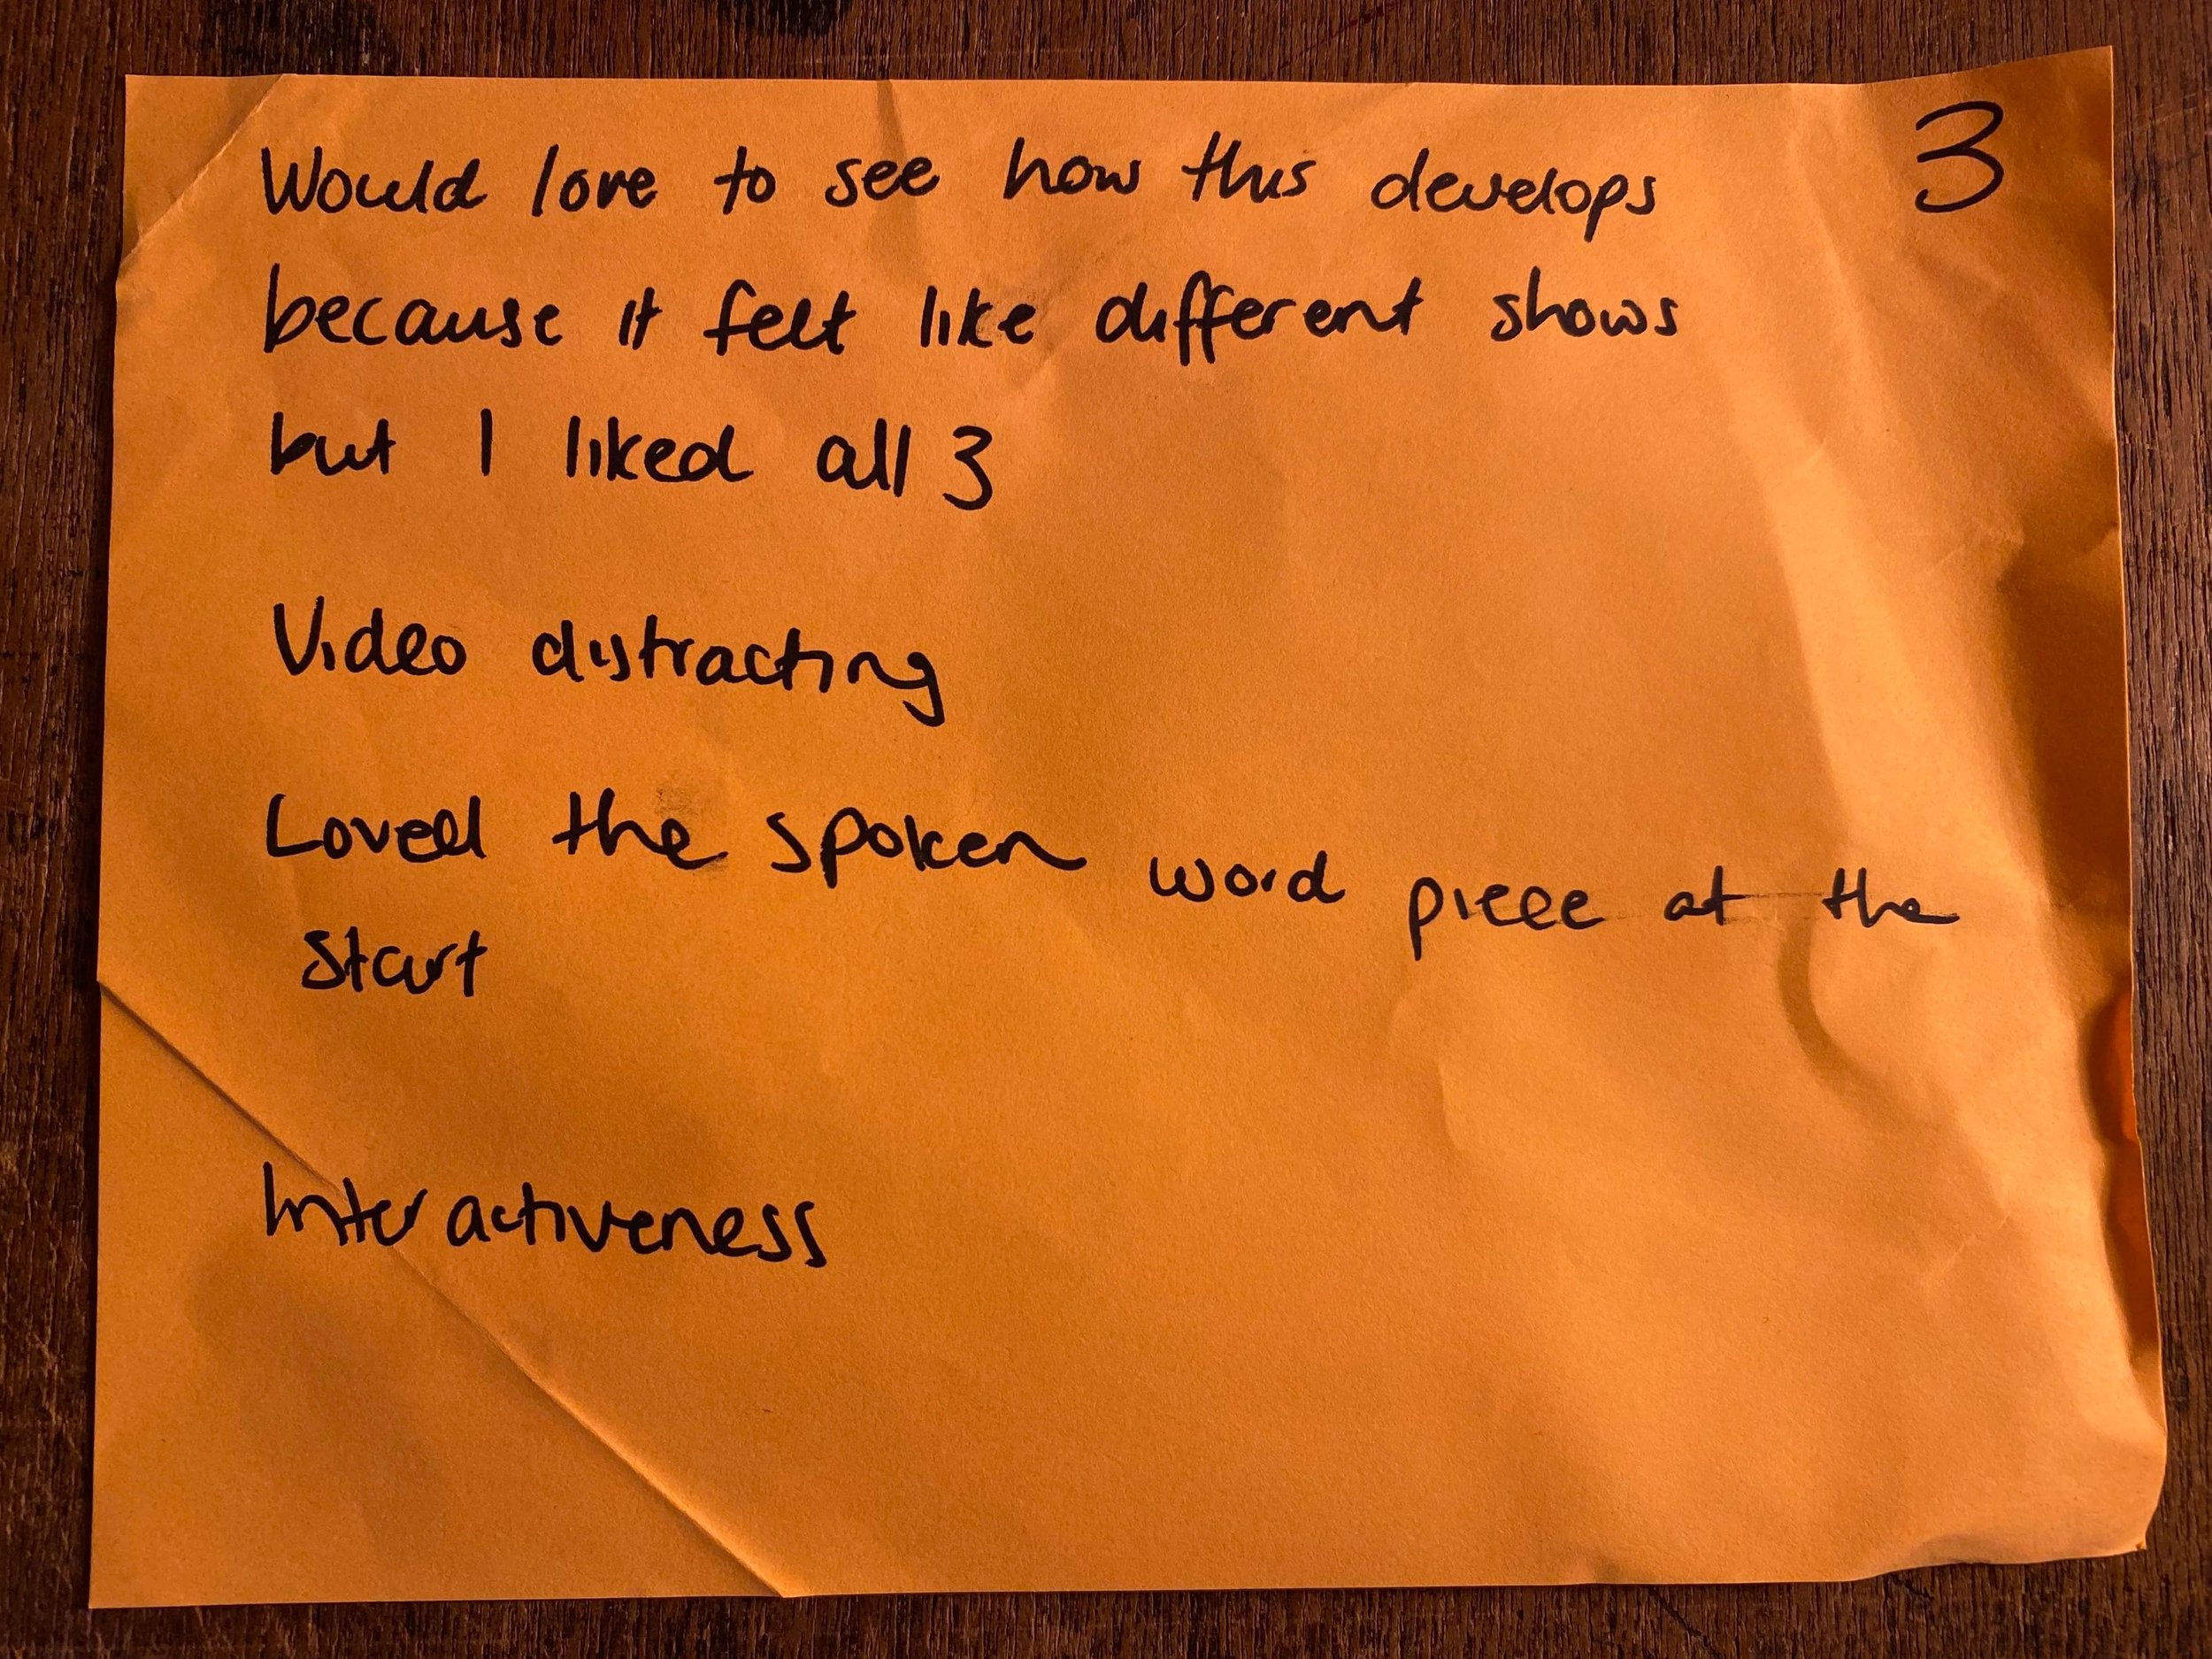 3
Would love to see how this develops
because it felt like different shows
but I liked all 3
Video distracting
Loved the spoken word piece at the
start
Interactiveness